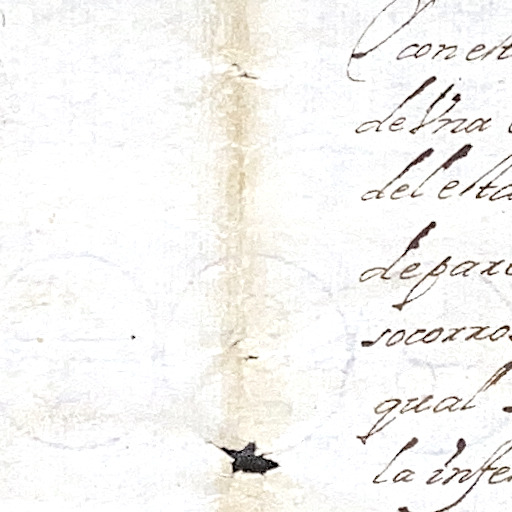 con est
de Vna
del esta
de pari
socorros
qual
la infe